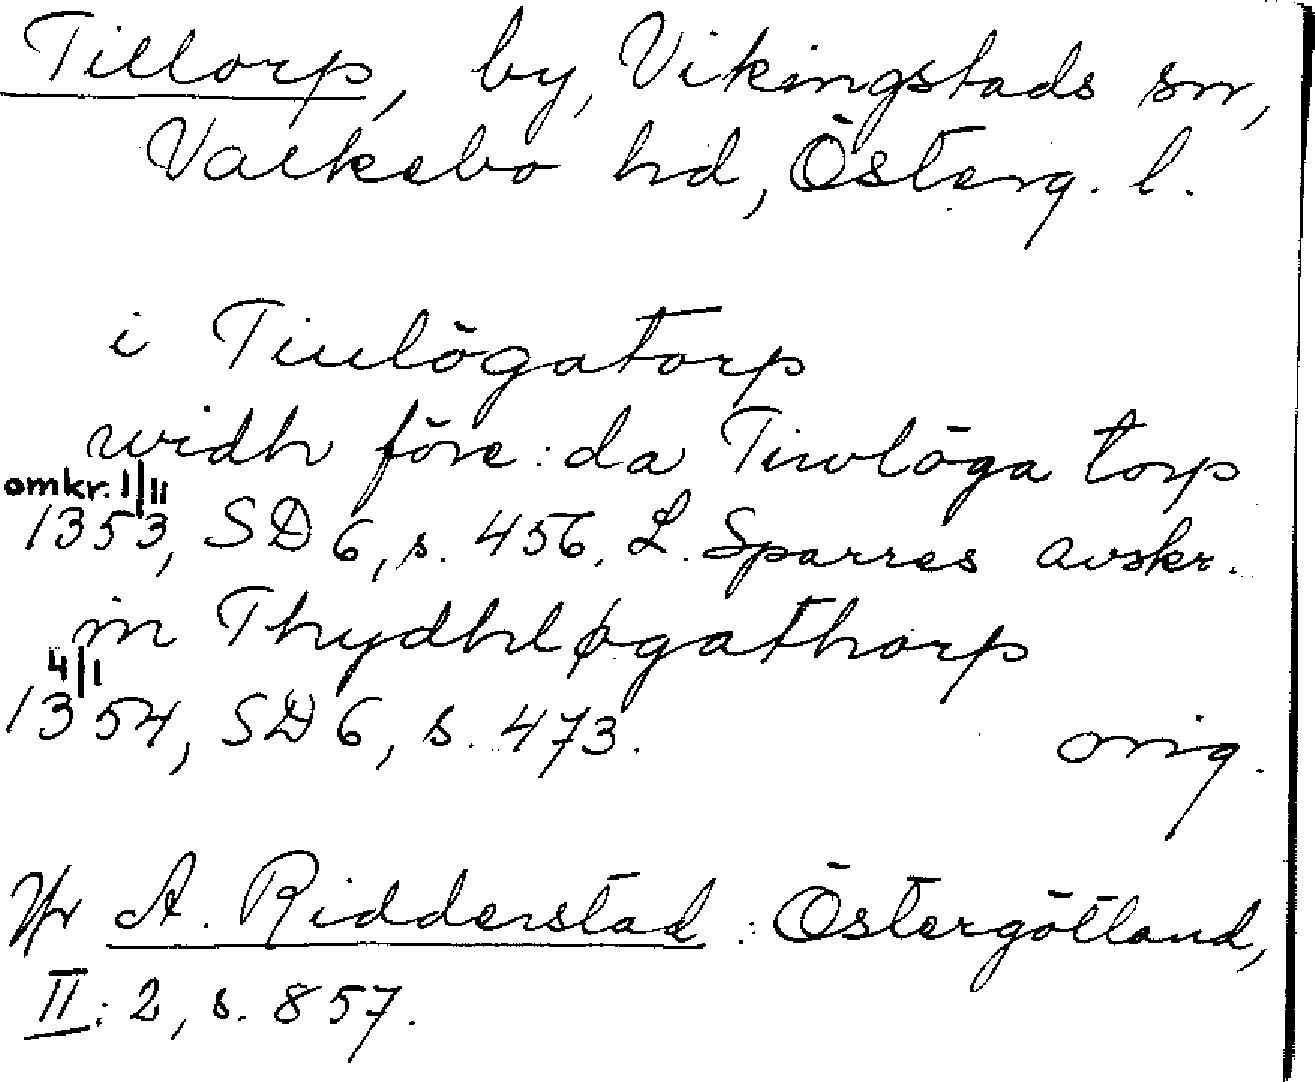 Tillorp, by, Vikingstads sn,
Valkebo hd, Österg. l.
i Tiulögatorp
widh före:da Tiwlöga torp
omkr. 1/11
1353, SD 6, s. 456, L. Sparres avskr.
in Thydhløgathorp
4/1
1354, SD 6, s. 473. orig.
Jfr A. Ridderstad: Östergötland,
II:2, s. 857.